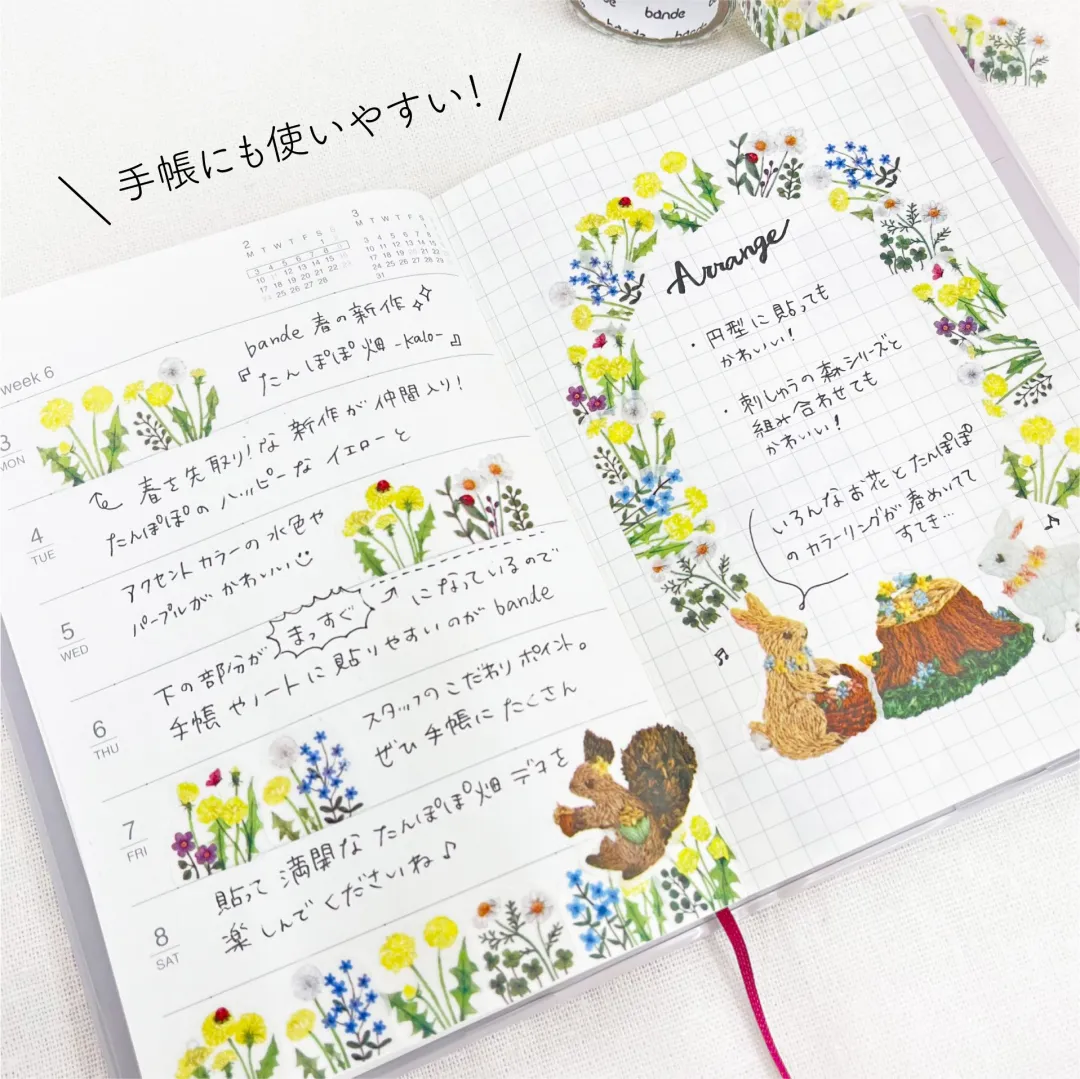 bande
bande
bande
手帳にも使いやすい!
2
M T W T F S S
1 2
3 4 5 6 7 8 9
10 11 12 13 14 15 16
17 18 19 20 21 22 23
24 25 26 27 28
3
M T W T F S
3 4 5 6 7 8
10 11 12 13 14 15
17 18 19 20 21 22
24 25 26 27 28 29
31
week 6
bande 春の新作
『たんぽぽ畑 -kalo-』
3
MON
春を先取り!な新作が仲間入り!
たんぽぽのハッピーなイエローと
4
TUE
アクセントカラーの水色や
パープルがかわいい
5
WED
下の部分がまっすぐになっているので
手帳やノートに貼りやすいのがbande
6
THU
スタッフのこだわりポイント。
ぜひ手帳にたくさん
7
FRI
貼って満開なたんぽぽ畑デコを
楽しんでくださいね♪
8
SAT
Arrange
・円型に貼っても
かわいい!
・刺しゅうの森シリーズと
組み合わせても
かわいい!
いろんなお花とたんぽぽ
のカラーリングが春めいてて
すてき…